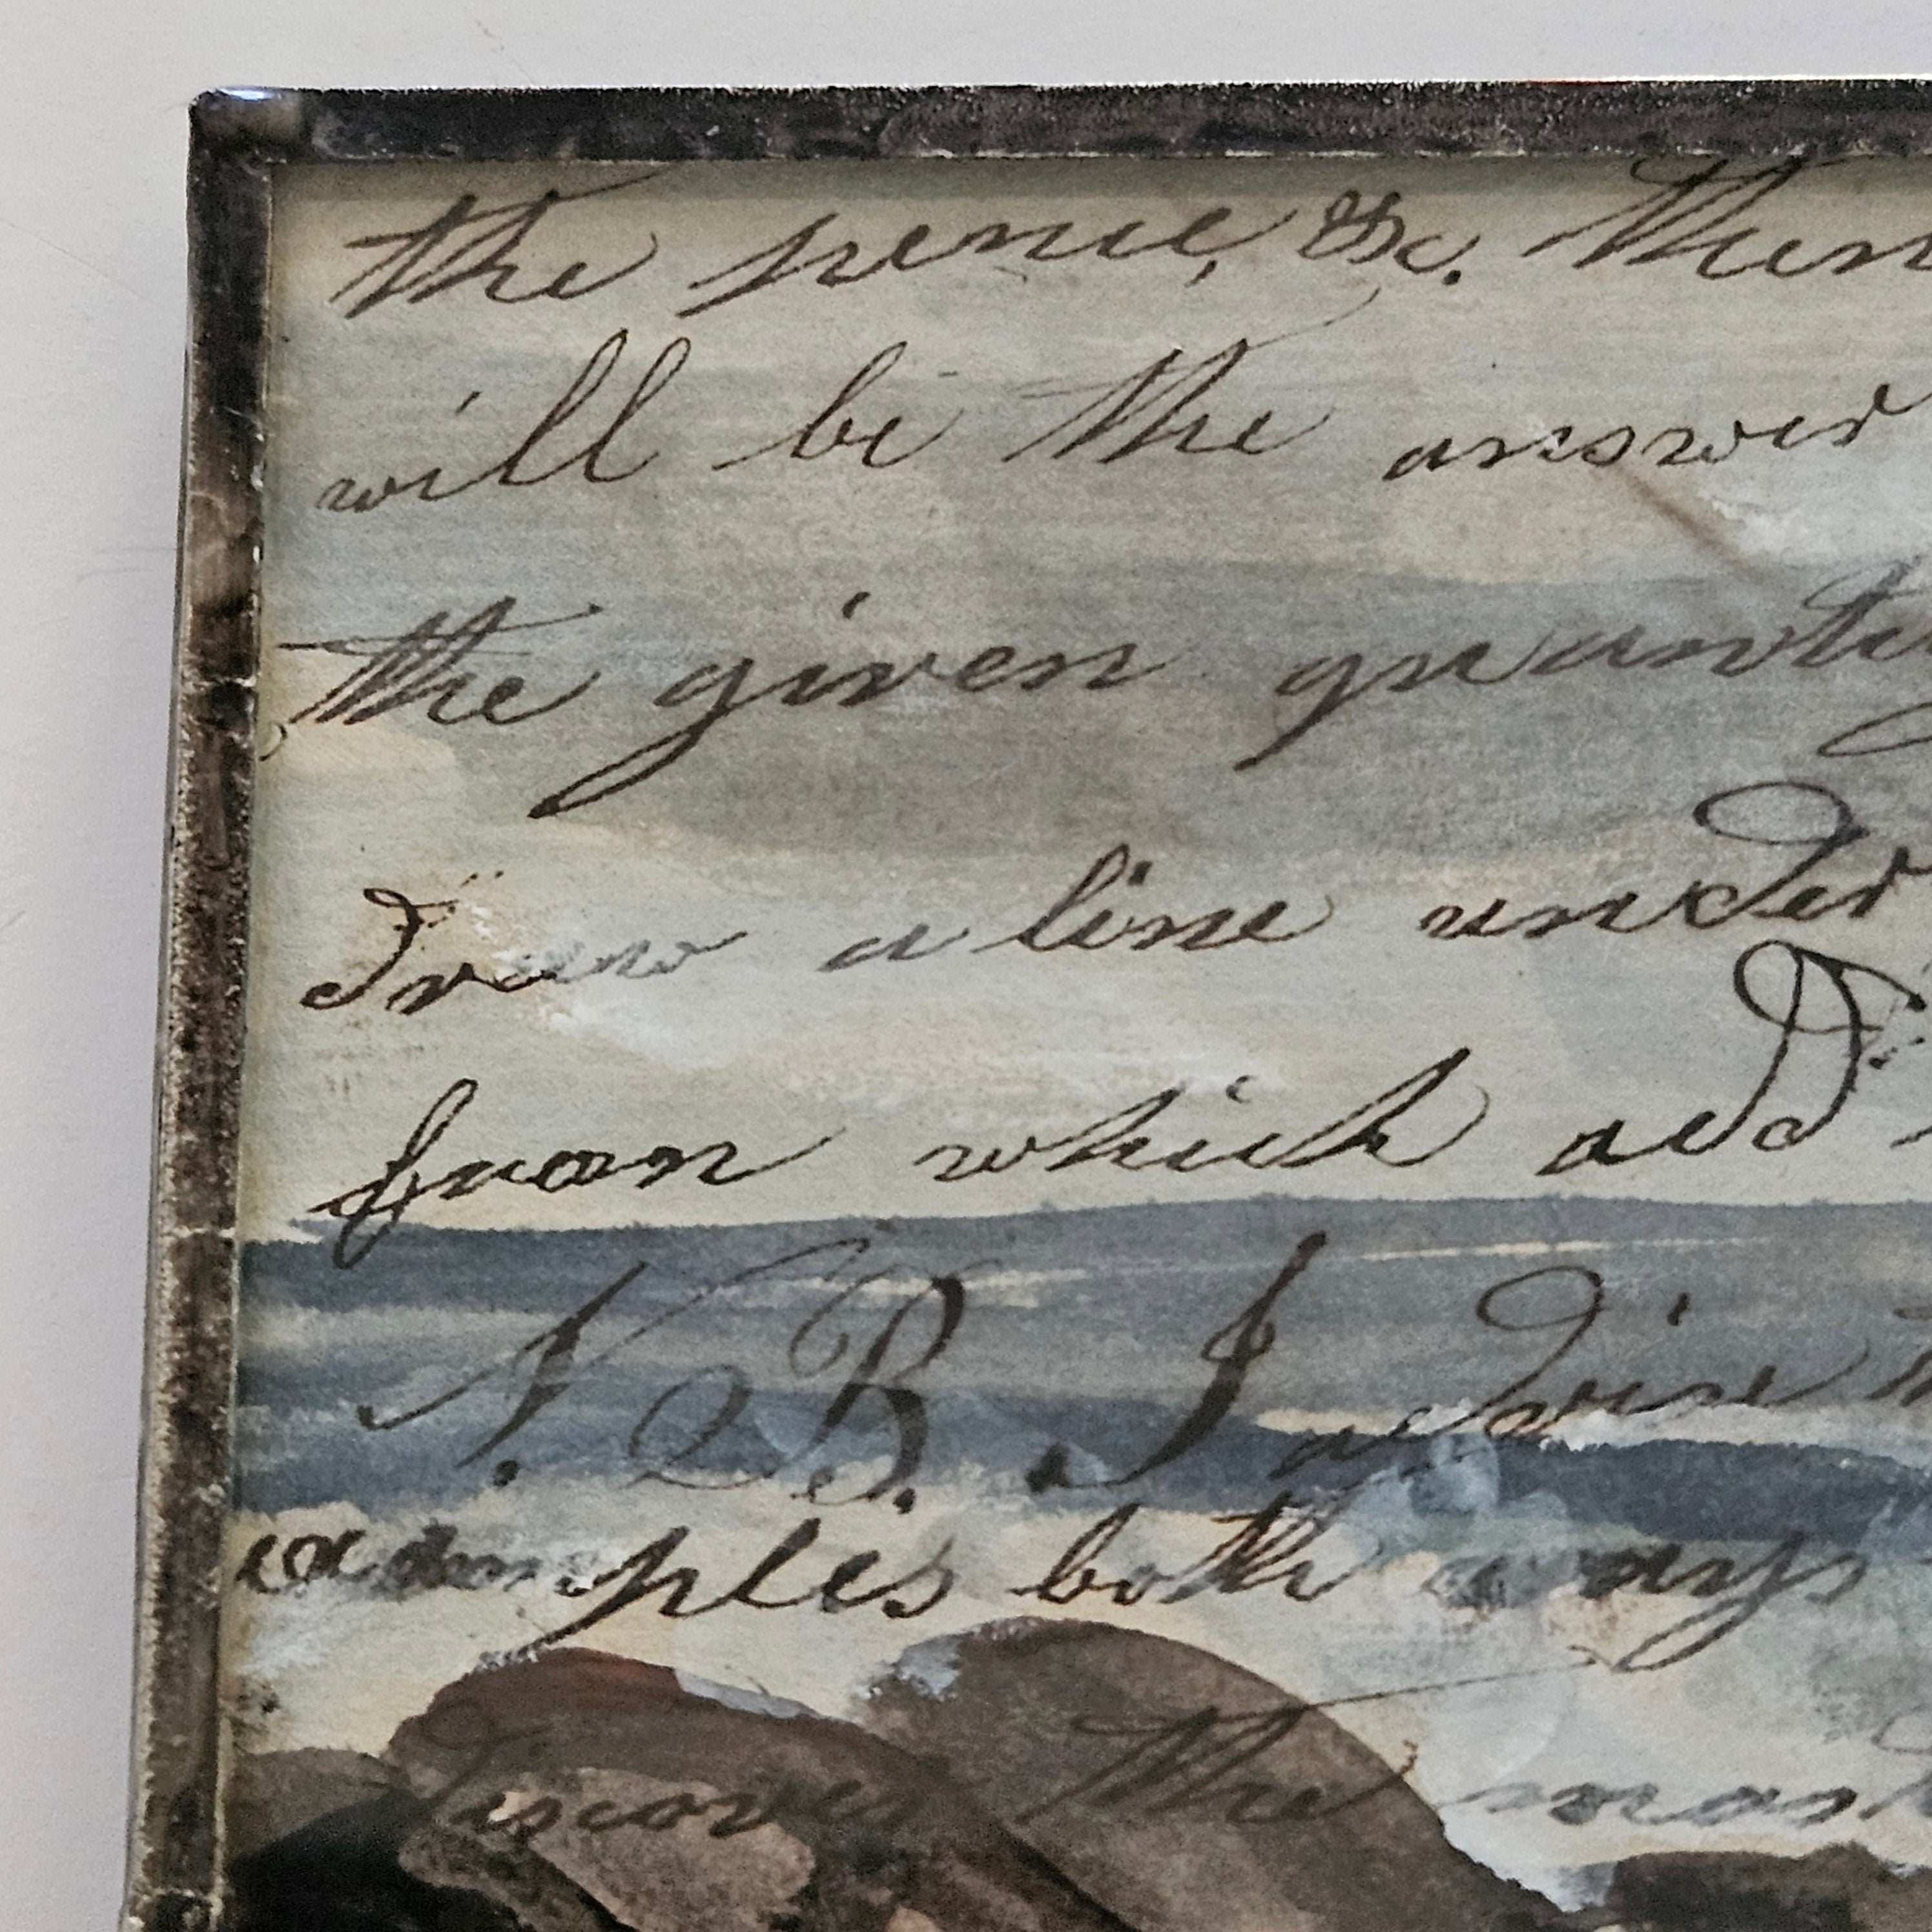 the pence, &c. then
will be the answer
the given quantity
draw a line under
from which add
N. B. I advise
examples both ways
discover the most